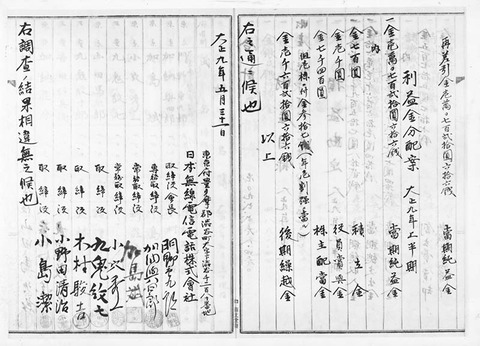 再差引金壱萬〇七百弐拾圓六拾六銭 當期純益金
利益金分配案 大正九年上半期
一金壱萬〇七百弐拾圓六拾六銭 當期純益金
内
金七百圓 積立金
金壱千圓 役員賞與金
金七千四百圓 株主配當金
金壱千六百弐拾圓六拾六銭 後期繰越金
以上
右之通ニ候也
大正九年五月三十一日
日本無線電信電話株式會社
取締役會長
専務取締役 加島斌
常務取締役
取締役 九鬼紋七
取締役 木村駿吉
取締役 小野田清治
取締役 小島潔
右調査ノ結果相違無之候也